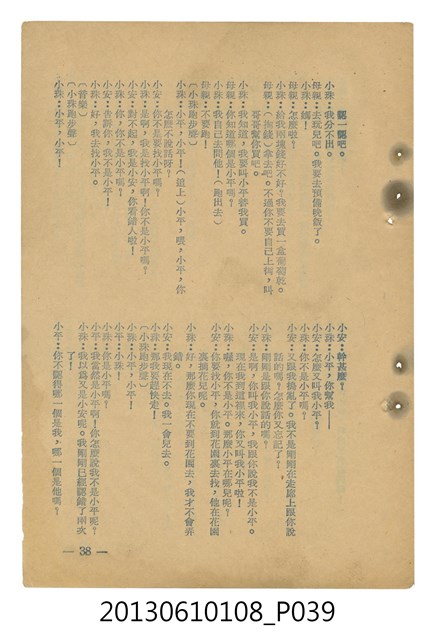 認一認吧。
小珠：我分不出。
母親：去玩兒吧。我要去預備晚飯了。
小珠：媽！
母親：怎麼啦？
小珠：給我兩塊錢好不好？我要去買一盒葡萄乾。
母親：（掏錢）拿去吧。不過你不要自己上街，叫
哥哥幫你買吧。
小珠：我知道，我要叫小平替我買。
母親：你知道哪個是小平嗎？
小珠：我自己去問他！（跑出去）
母親：不要跑！
（小珠跑步聲）
小珠：小平，小平！（追上）小平，喂，小平，你
怎麼不說話呀？
小安：你不是要找小平嗎？
小珠：是啊，我是找小平啊！你不是小平嗎？
小安：對不起，我是小安，你看錯人啦！
小珠：你，你不是小平嗎？
小安：告訴你，我不是小平！
小珠：好，我去找小平。
（音樂）
（小珠跑步聲）
小珠：小平，小平！
小安：幹甚麼？
小珠：小平，你幫我——
小安：怎麼又叫我小平？
小珠：你不是小平嗎？
小安：又跟我搗亂了。我不是剛剛在走廊上跟你說
話的嗎？怎麼你又忘記了？
小珠：剛剛是跟你說話的嗎？
小安：是啊！你叫我小平，我跟你說我不是小平。
現在我到這裡來，你又叫我小平啦！
小珠：喔，你不是小平。那麼小平在哪兒呢？
小安：你要找小平，你就到花園裏去找，他在花園
裏摘花兒呢。
小珠：好，那麼你現在不要到花園去，我才不會弄
錯。
小安：我現在不去。我一會兒去。
小珠：那我要趕快走！
（小珠跑步聲）
小珠：小平，小平！
小平：小珠！
小珠：你是小平嗎？
小平：我當然是小平啊！你怎麼說我不是小平呢？
小珠：我以爲又是小安呢。我剛剛已經認錯了兩次
了！
小平：你不認得哪一個是我，哪一個是他嗎？
— 38 —
20130610108_P039